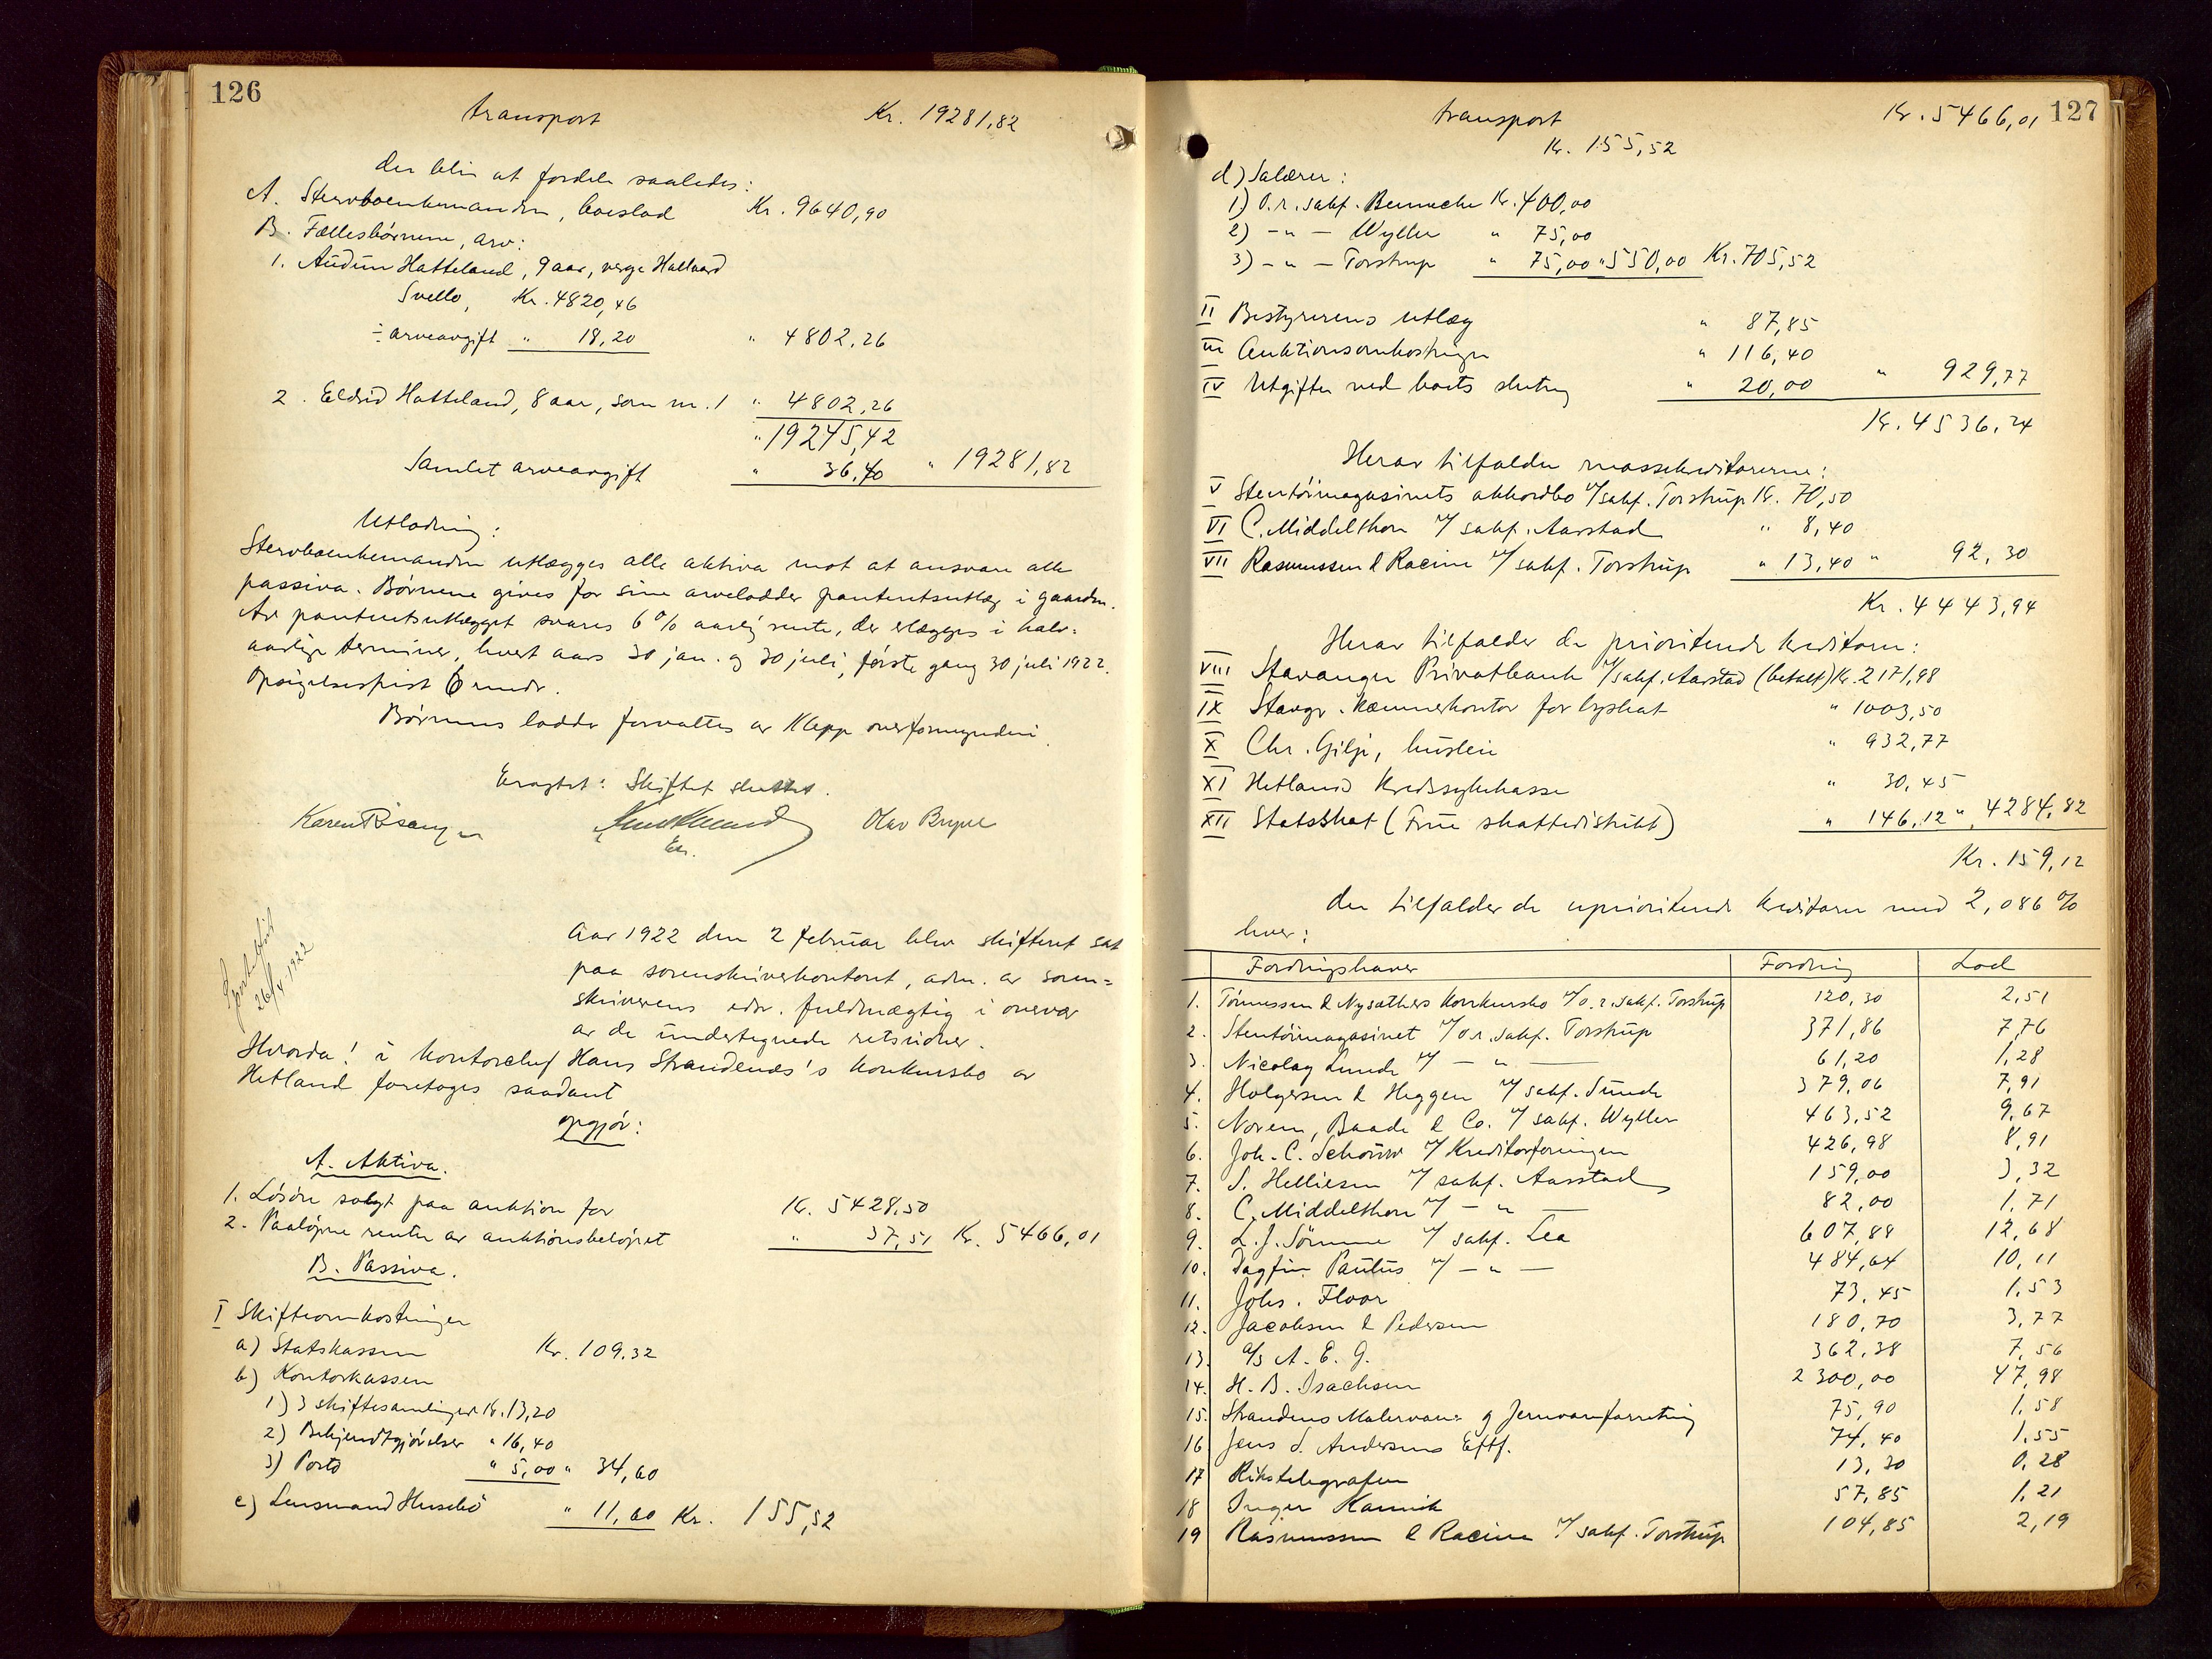 126
transport Kr. 19281,82
der blir at fordele saaledes:
A. Stervboenkemanden, boeslod Kr. 9640,90
B. Fællesbørnene, arv:
1. Audun Hatteland, 9 aar, verge Hallvard
Svello, Kr. 4820,46
÷ arveavgift " 18,20 " 4802,26
2. Eldrid Hatteland, 8 aar, som nr. 1 " 4802,26
" 19245,42
Samlet arveavgift " 36,40 " 19281,82
Utlodning:
Stervboenkemanden utlægges alle aktiva mot at ansvare alle
passiva. Børnene gives for sine arvelodder panteretsutlæg i gaarden.
Av panteretsutlægget svares 6 % aarlig rente, der erlægges i halv-
aarlige terminer, hvert aars 30 jan. og 30 juli, første gang 30 juli 1922.
Opsigelsesfrist 6 mndr.
Børnenes lodder forvaltes av Klepp overformynderi.
Eragtet: Skiftet sluttet.
Karen Olav Bryne
26/4 1922
Aar 1922 den 2 februar blev skifteret sat
paa sorenskriverkontoret, adm. av soren-
skriverens edsv. fuldmægtig i overvær
av de undertegnede retsvidner.
Hvorda! i kontorchef Hans Strandenæs's konkursbo av
Hetland foretoges saadant
opgjør:
A. Aktiva.
1. Løsøre solgt paa auktion for Kr. 5428,50
2. Paaløpne renter av auktionsbeløpet " 37,51 Kr. 5466,01
B. Passiva.
I Skifteomkostninger
a) Statskassen Kr. 109,32
b) Kontorkassen
1) 3 skiftesamlinger Kr. 13,20
2) Bekjendtgjørelser " 16,40
3) Porto " 5,00 " 34,60
c) Lensmand Husebø " 11,60 Kr. 155,52
127
transport Kr. 5466,01
Kr. 155,52
d) Salærer:
1) O.r.sakf. Benneche Kr. 400,00
2) -"- Wyller " 75,00
3) -"- Torstrup " 75,00 " 550,00 Kr. 705,52
II Bestyrerens utlæg " 87,85
III Auktionsomkostninger " 116,40
IV Utgifter ved boets slutning " 20,00 " 929,77
Kr. 4536,24
Herav tilfalder massekreditorerne:
V Stentøimagasinets akkordbo v/ sakf. Torstrup Kr. 70,50
VI C. Middelthon v/ sakf. Aarstad " 8,40
VII Rasmussen & Racine v/ sakf. Torstrup " 13,40 " 92,30
Kr. 4443,94
Herav tilfalder de prioriterede kreditorer:
VIII Stavanger Privatbank v/ sakf. Aarstad (betalt) Kr. 2171,98
IX Stavgr. Kæmnerkontor for byskat " 1003,50
X Chr. Gilje, husleie " 932,77
XI Hetland Kredssykekasse " 30,45
XII Statsskat (Frue skattedistrikt) " 146,12 " 4284,82
Kr. 159,12
der tilfalder de uprioriterede kreditorer med 2,086 %
hver:
Fordringshaver Fordring Lod
1. Tønnessen & Nysæthers konkursbo v/ o.r.sakf. Torstrup 120,30 2,51
2. Stentøimagasinet v/ o.r.sakf. Torstrup 371,86 7,76
3. Nicolay Lunde v/ -"- 61,20 1,28
4. Holgersen & Heggen v/ sakf. Sunde 379,06 7,91
5. Norem, Baade & Co. v/ sakf. Wyller 463,52 9,67
6. Joh. C. Schouw v/ Kreditorforeningen 426,98 8,91
7. S. Helliesen v/ sakf. Aarstad 159,00 3,32
8. C. Middelthon v/ -"- 82,00 1,71
9. L. J. Sømme v/ sakf. Lea 607,88 12,68
10. Dagfin Paulus v/ -"- 484,64 10,11
11. Johs. Floor 73,45 1,53
12. Jacobsen & Pedersen 180,70 3,77
13. A/S A. E. G. 362,38 7,56
14. H. B. Isachsen 2300,00 47,98
15. Strandens Malervare- og Jernvareforretning 75,90 1,58
16 Jens S. Andersens Eftf. 74,40 1,55
17 Rikstelegrafen 13,30 0,28
18 Inger Kannik 57,85 1,21
19 Rasmussen & Racine v/ sakf. Torstrup 104,85 2,19